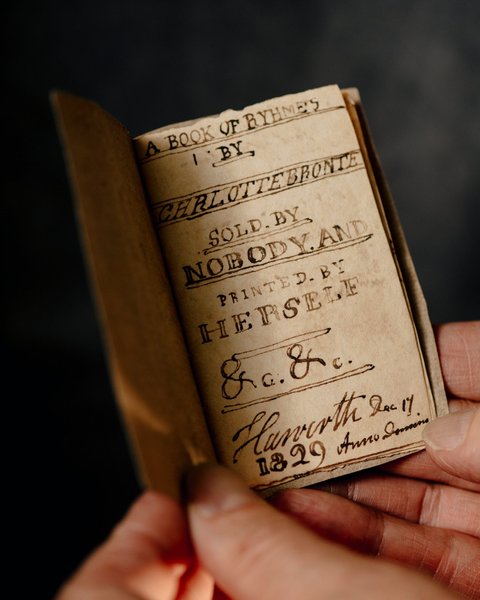 A BOOK OF RYHMES
BY
CHRLOTTE BRONTE
SOLD. BY
NOBODY. AND
PRINTED. BY
HERSELF
&c. &c.
Haworth Dec 17.
1829 Anno Domini